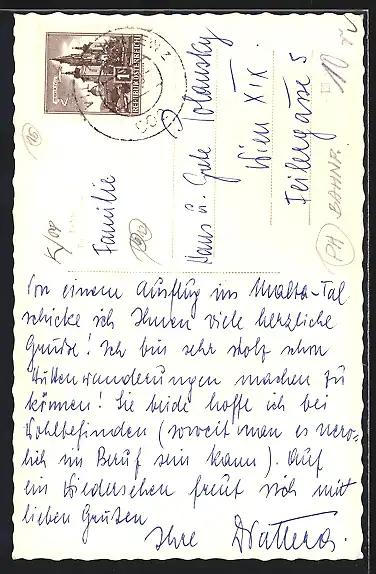 REPUBLIK ÖSTERREICH
Familie
Hans u. Grete
Wien XIX
10
PH BAHNR.
K/OP
Von einem Ausflug ins Malta-Tal
schicke ich Ihnen viele herzliche
Grüße! Ich bin sehr stolz schon
Hüttenwanderungen machen zu
können! Sie beide hoffe ich bei
Wohlbefinden (soweit man es
im Beruf sein kann). Auf
ein Wiedersehen freut sich mit
lieben Grüßen
Ihre